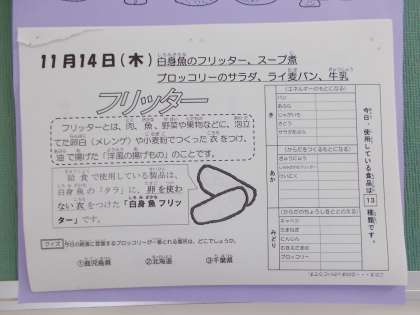 11月14日(木) 白身魚のフリッター、スープ煮
ブロッコリーのサラダ、ライ麦パン、牛乳
フリッター
フリッターとは、肉、魚、野菜や果物などに、泡立
てた卵白(メレンゲ)や小麦粉でつくった衣をつけ、
油で揚げた「洋風の揚げもの」のことです。
給食で使用している製品は、
白身魚の「タラ」に、卵を使わ
ない衣をつけた「白身魚フリッ
ター」です。
クイズ 今日の給食に登場するブロッコリーが一番とれる場所は、どこでしょうか。
①鹿児島県 ②北海道 ③千葉県
今日、使用している食品は 13 種類です。
き
(エネルギーのもとになる)
パン
あぶら
じゃがいも
さとう
あか
(からだをつくるもとになる)
ぎゅうにゅう
みどり
(からだのちょうしをととのえる)
キャベツ
たまねぎ
にんじん
ブロッコリー